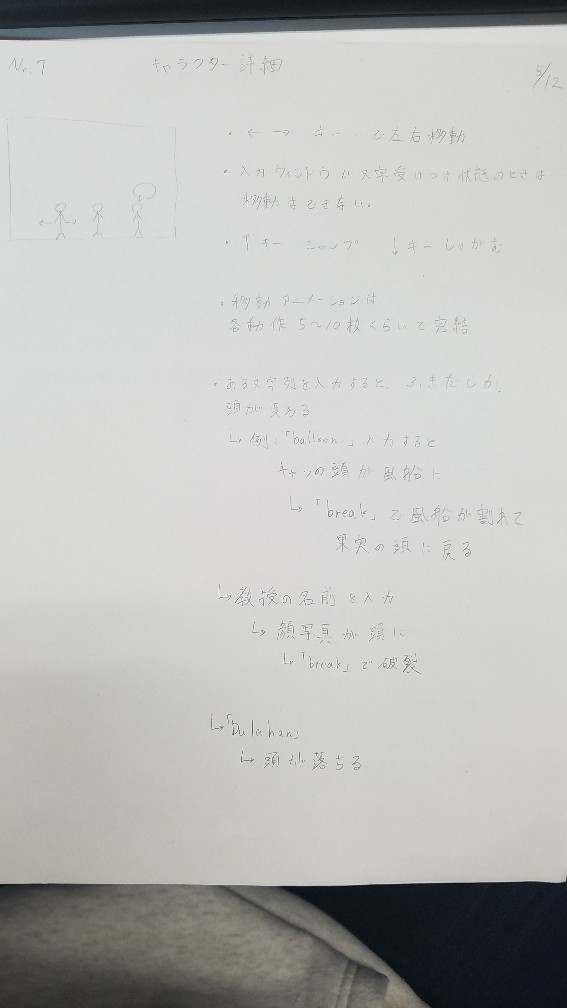 No.7 キャラクター詳細 5/12
・← → キーで左右移動
・入力ウィンドウが文字受けつけ状態のときは
移動はできない。
・↑キー ジャンプ ↓キー しゃがむ
・移動アニメーションは
各動作 5～10枚くらいで完結
・ある文字列を入力すると、ふきだしか、
頭が変わる
↳ 例:「balloon」入力すると
キャラの頭が風船に
↳「break」で風船が割れて
果実の頭に戻る
↳ 教授の名前を入力
↳ 顔写真が頭に
↳「break」で破裂
↳「Dulahan」
↳ 頭が落ちる